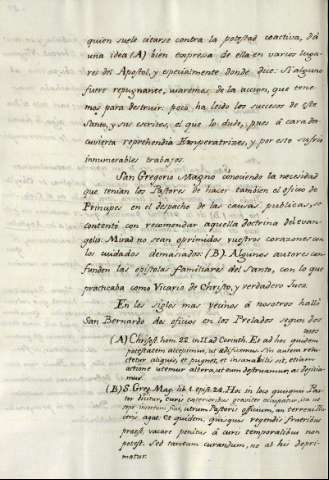 quien suele citarse contra la potestad coactiva, dá
una idea (A) bien expresa de ella en varios luga-
res del Apostol, y especialmente donde dice: Si alguno
fuere repugnante, usaremos de la accion, que tene-
mos para destruir. poco ha leido los sucesos de este
Santo, y sus escritos, el que lo dude, pues á cara des-
cuvierta reprehendia Emperatrizes, y por esto sufrio
innumerables trabajos.
San Gregorio Magno conociendo la necesidad
que tenian los Pastores de hacer tambien el oficio de
Principes en el despacho de las causas publicas, se
contentó con recomendar aquella doctrina del evan-
gelio. Mirad no sean oprimidos vuestros corazones con
los cuidados demasiados (B). Algunos autores con-
funden las epistolas familiares del Santo, con lo que
practicaba como Vicario de Christo, y verdadero Juez.
En los siglos mas vecinos á nosotros halló
San Bernardo dos oficios en los Prelados segun dos
(A) Chrisost. hom. 22. in II ad Corinth. Et ad hoc quidem
potestatem accepimus, ut adificemus. Sin autem
aliquis, et pugnet, et insanabilis sit, etiam
utemur altera, ut eum destruamus, ac
mus.
(B) S. Greg. Mag. lib. 1. epist. 24. Hoc in loco quisquis Pas-
tor dicitur, curis exterioribus graviter occupatur, ita ut
incertum fiat, utrum Pastoris officium, an terreni
agat. Et quidem, quisquis regendis fratribus
praeest, vacare penitus á curis temporalibus non
potest. Sed tantum curandum, ne ab his depri-
matur.